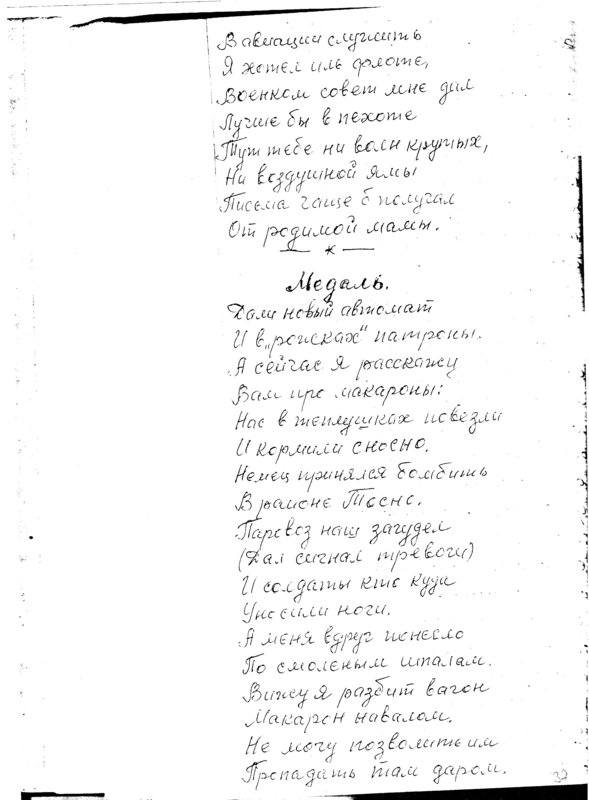 В авиации служить
Я хотел иль флоте,
Военком совет мне дал
Лучше бы в пехоте
Тут тебе ни волн крутых,
Ни воздушной ямы
Письма чаще б получал
От родимой мамы.
— * —
Медаль.
Дали новый автомат
И в „рожках" патроны.
А сейчас я расскажу
Вам про макароны:
Нас в теплушках повезли
И кормили сносно.
Немец принялся бомбить
В районе Тосно.
Паровоз наш загудел
(Дал сигнал тревоги)
И солдаты кто куда
Уносили ноги.
А меня вдруг понесло
По смоленым шпалам.
Вижу я разбит вагон
Макарон навалом.
Не могу позволить им
Пропадать там даром.
37